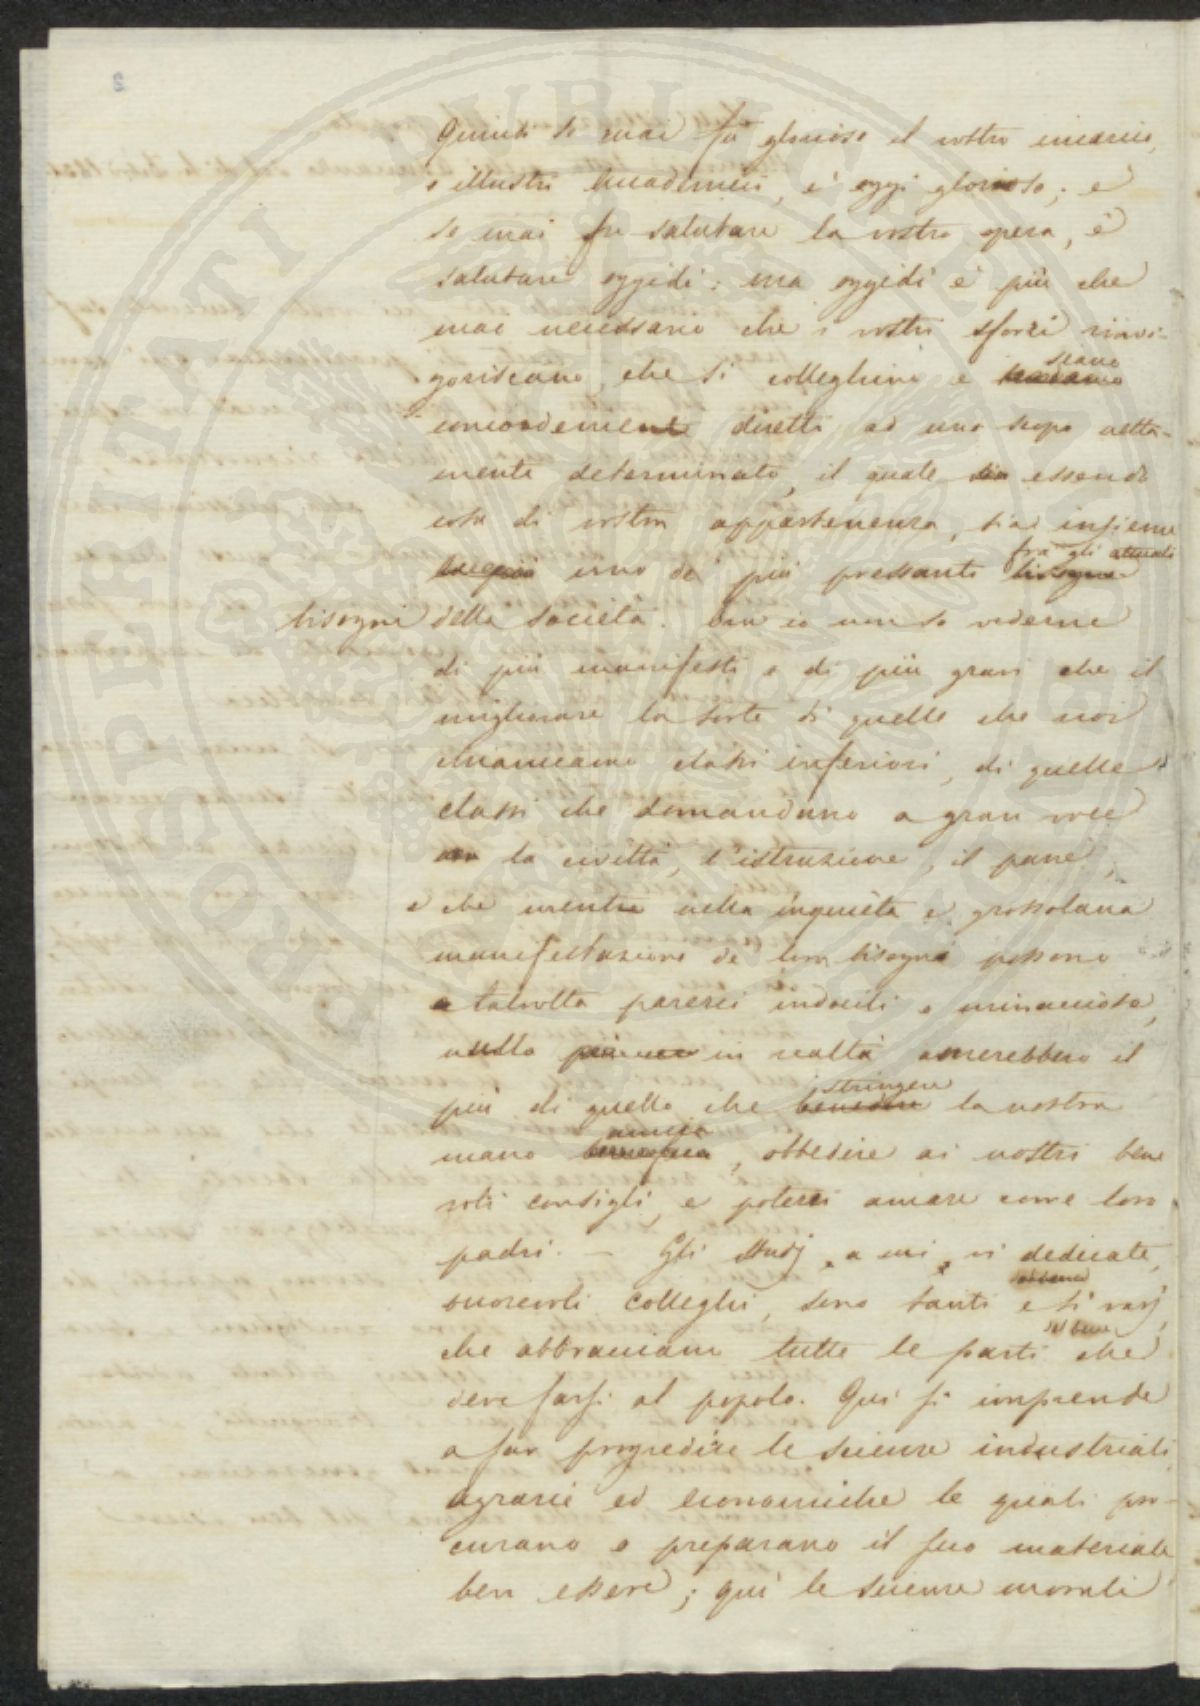 Quindi se mai fu glorioso il vostro incarico,
o illustri Accademici, è oggi glorioso; e
se mai fu salutare la vostra opera, è
salutare oggidì: ma oggidì è più che
mai necessario che i vostri sforzi rinvi-
goriscano, che si colleghino e siano
concordemente diretti ad uno scopo netta-
mente determinato, il quale essendo
cosa di vostra appartenenza, sia insieme
uno de' più pressanti fra gli attuali
bisogni della società. Ora io non so vederne
di più manifesti e di più gravi che il
migliorare la sorte di quelle che noi
chiamiamo classi inferiori, di quelle
classi che domandano a gran voce
la civiltà, l'istruzione, il pane,
e che mentre nella inquieta e grossolana
manifestazione de' loro bisogni possono
talvolta parerci indocili e minacciose,
nulla in realtà amerebbero il
più di quello che stringere la nostra
mano amica, obbedire ai nostri bene
voli consigli, e poterci amare come loro
padri. — Gli studj, a cui vi dedicate,
onorevoli colleghi, sono tanti e sì varj,
che abbracciano tutte le parti del bene che
deve farsi al popolo. Qui si imprende
a far progredire le scienze industriali
agrarie ed economiche le quali pro-
curano e preparano il suo materiale
ben essere; qui le scienze morali